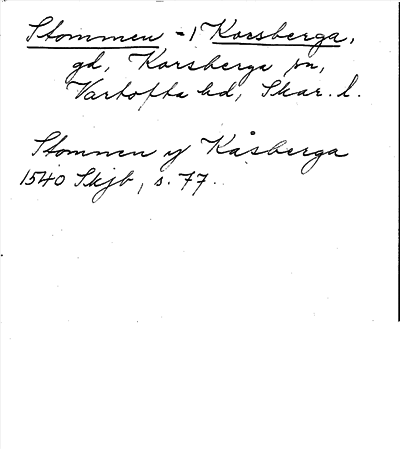 Stommen - i Korsberga,
gd, Korsberga sn,
Vartofta hd, Skar. l.
Stommen y Kåsberga
1540 Skjb, s. 77.